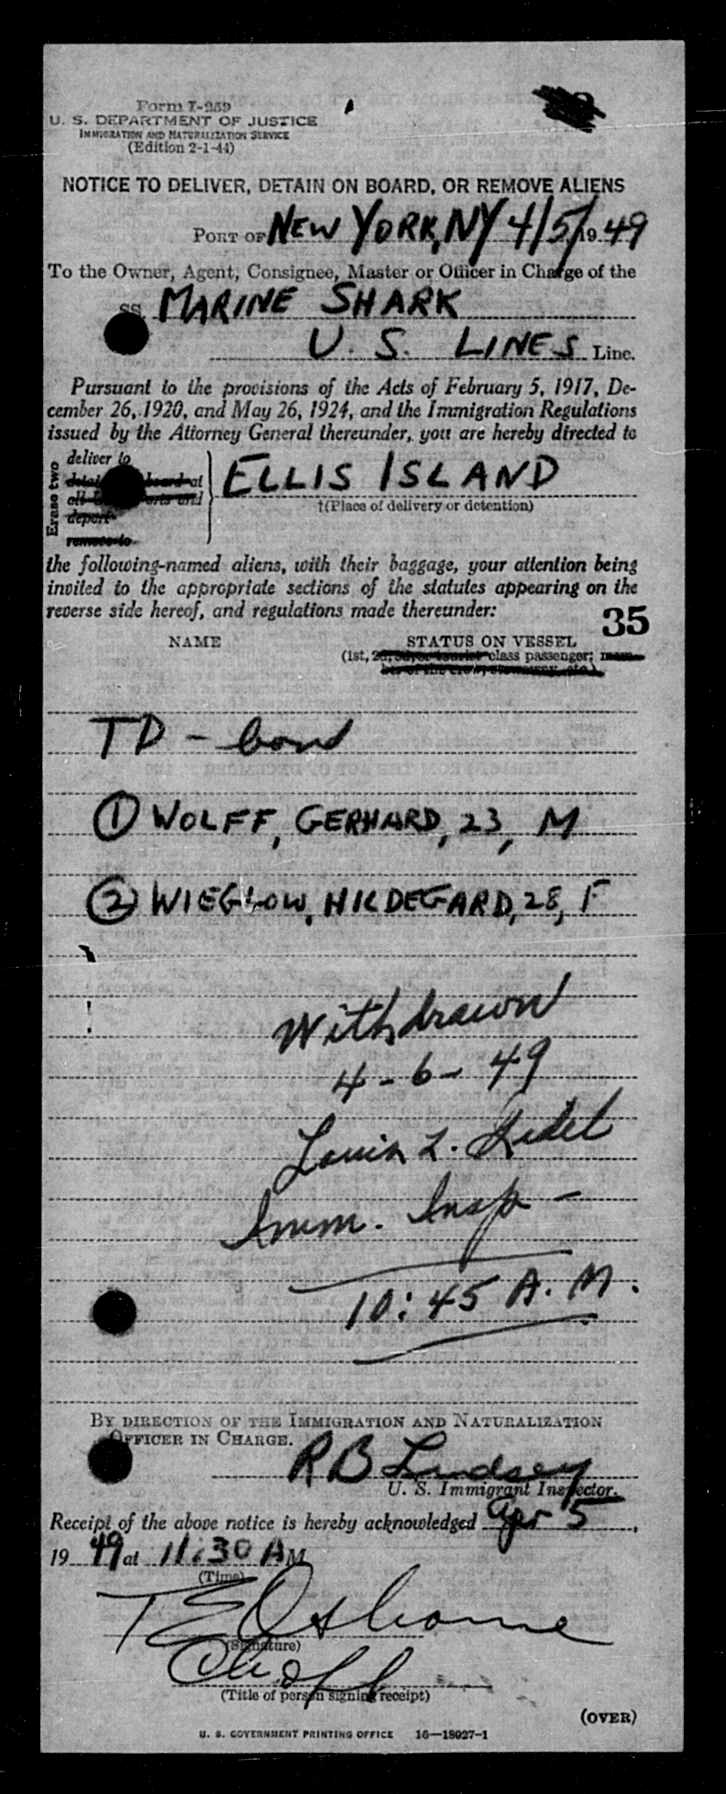 Form I-259
U. S. DEPARTMENT OF JUSTICE
IMMIGRATION AND NATURALIZATION SERVICE
(Edition 2-1-44)
NOTICE TO DELIVER, DETAIN ON BOARD, OR REMOVE ALIENS
PORT OF NEW YORK, NY 4/5/1949
To the Owner, Agent, Consignee, Master or Officer in Charge of the
SS. MARINE SHARK
U. S. LINES Line.
Pursuant to the provisions of the Acts of February 5, 1917, De-
cember 26, 1920, and May 26, 1924, and the Immigration Regulations
issued by the Attorney General thereunder, you are hereby directed to
Erase two
deliver to
board at
depart
remove to
ELLIS ISLAND
†(Place of delivery or detention)
the following-named aliens, with their baggage, your attention being
invited to the appropriate sections of the statutes appearing on the
reverse side hereof, and regulations made thereunder:
35
NAME STATUS ON VESSEL
(1st, class passenger;
TD - bond
① WOLFF, GERHARD, 23, M
② WIEGLOW, HILDEGARD, 28, F
Withdrawn
4-6-49
Louis L.
Imm. Insp -
10:45 A. M.
BY DIRECTION OF THE IMMIGRATION AND NATURALIZATION
OFFICER IN CHARGE.
R B Lindsey
U. S. Immigrant Inspector.
Receipt of the above notice is hereby acknowledged Apr 5,
19 49 at 11:30 AM
(Time)
T E Osborne
(Signature)
Ch. off
(Title of person signing receipt)
(OVER)
U. S. GOVERNMENT PRINTING OFFICE 16—18027-1